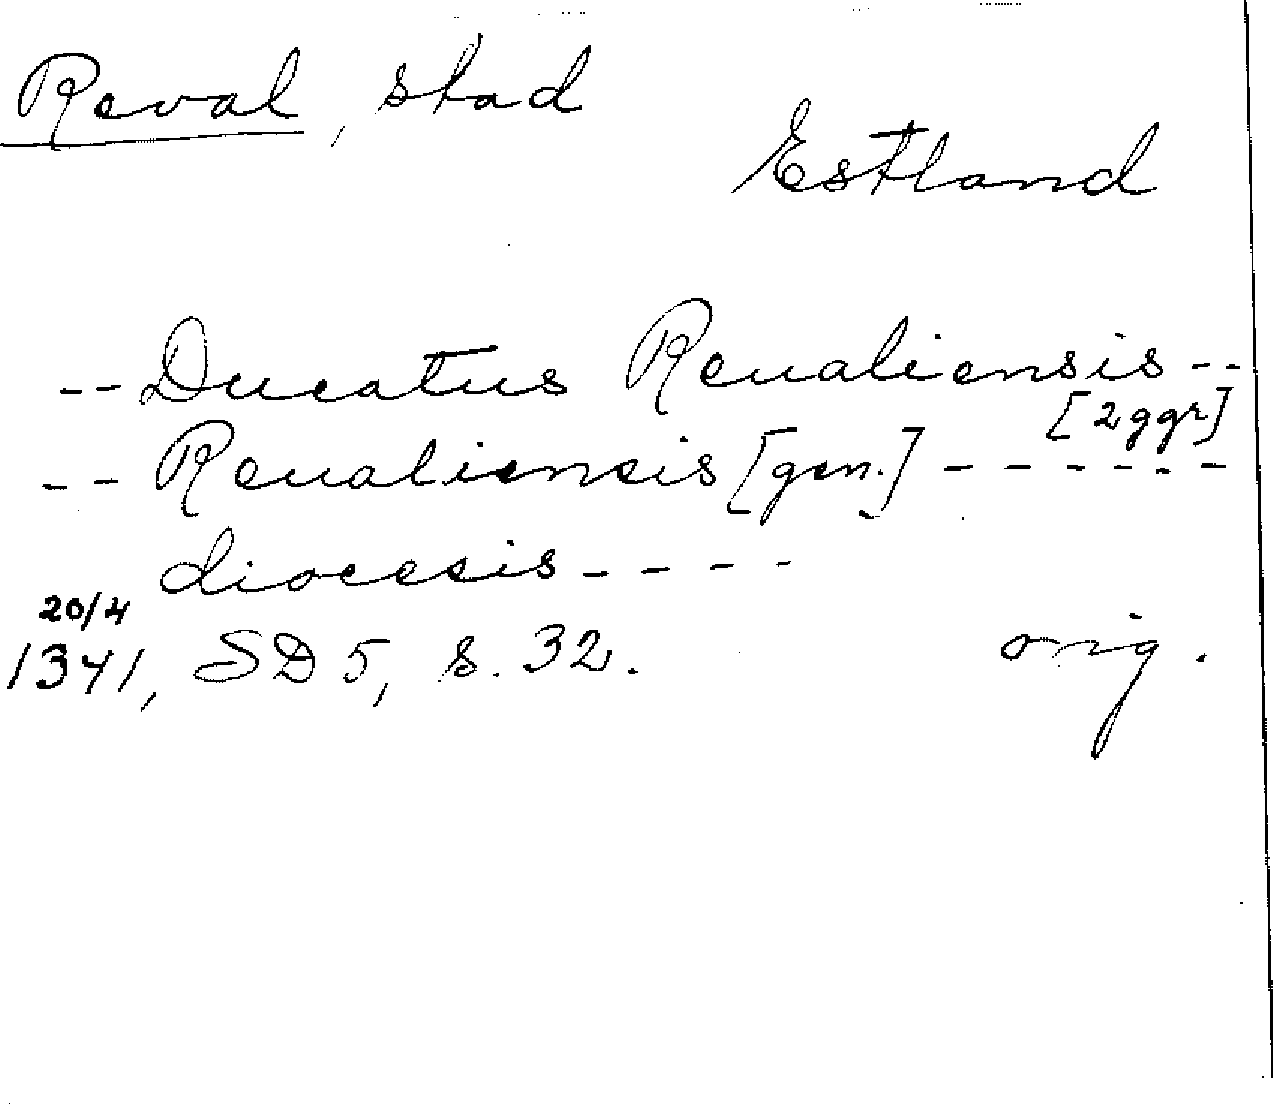 Reval, stad
Estland
-- Ducatus Reualiensis --
[2 ggr]
-- Reualiensis [gen.] - - - - - -
diocesis - - - -
20/4
1341, SD 5, s. 32. orig.